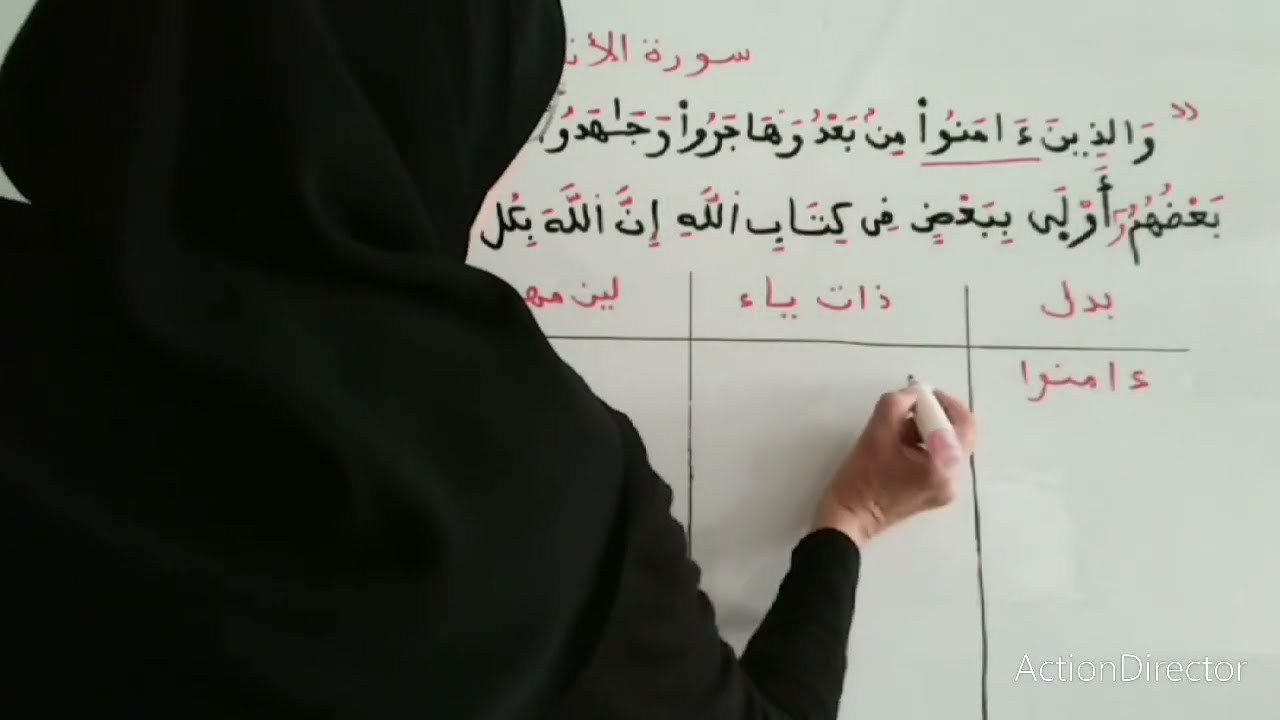 سورة الأنـ
« وَالذِينَ ءَامَنُواْ مِنۢ بَعْدُ وَهَاجَرُواْ وَجَٰهَدُواْ
بَعْضُهُمُۥٓ أَوْلَىٰ بِبَعْضٍ فِي كِتَابِ اللَّهِ إِنَّ اللَّهَ بِكُلِ
بدل
ذات ياء
لين مهـ
ءامنوا
ActionDirector